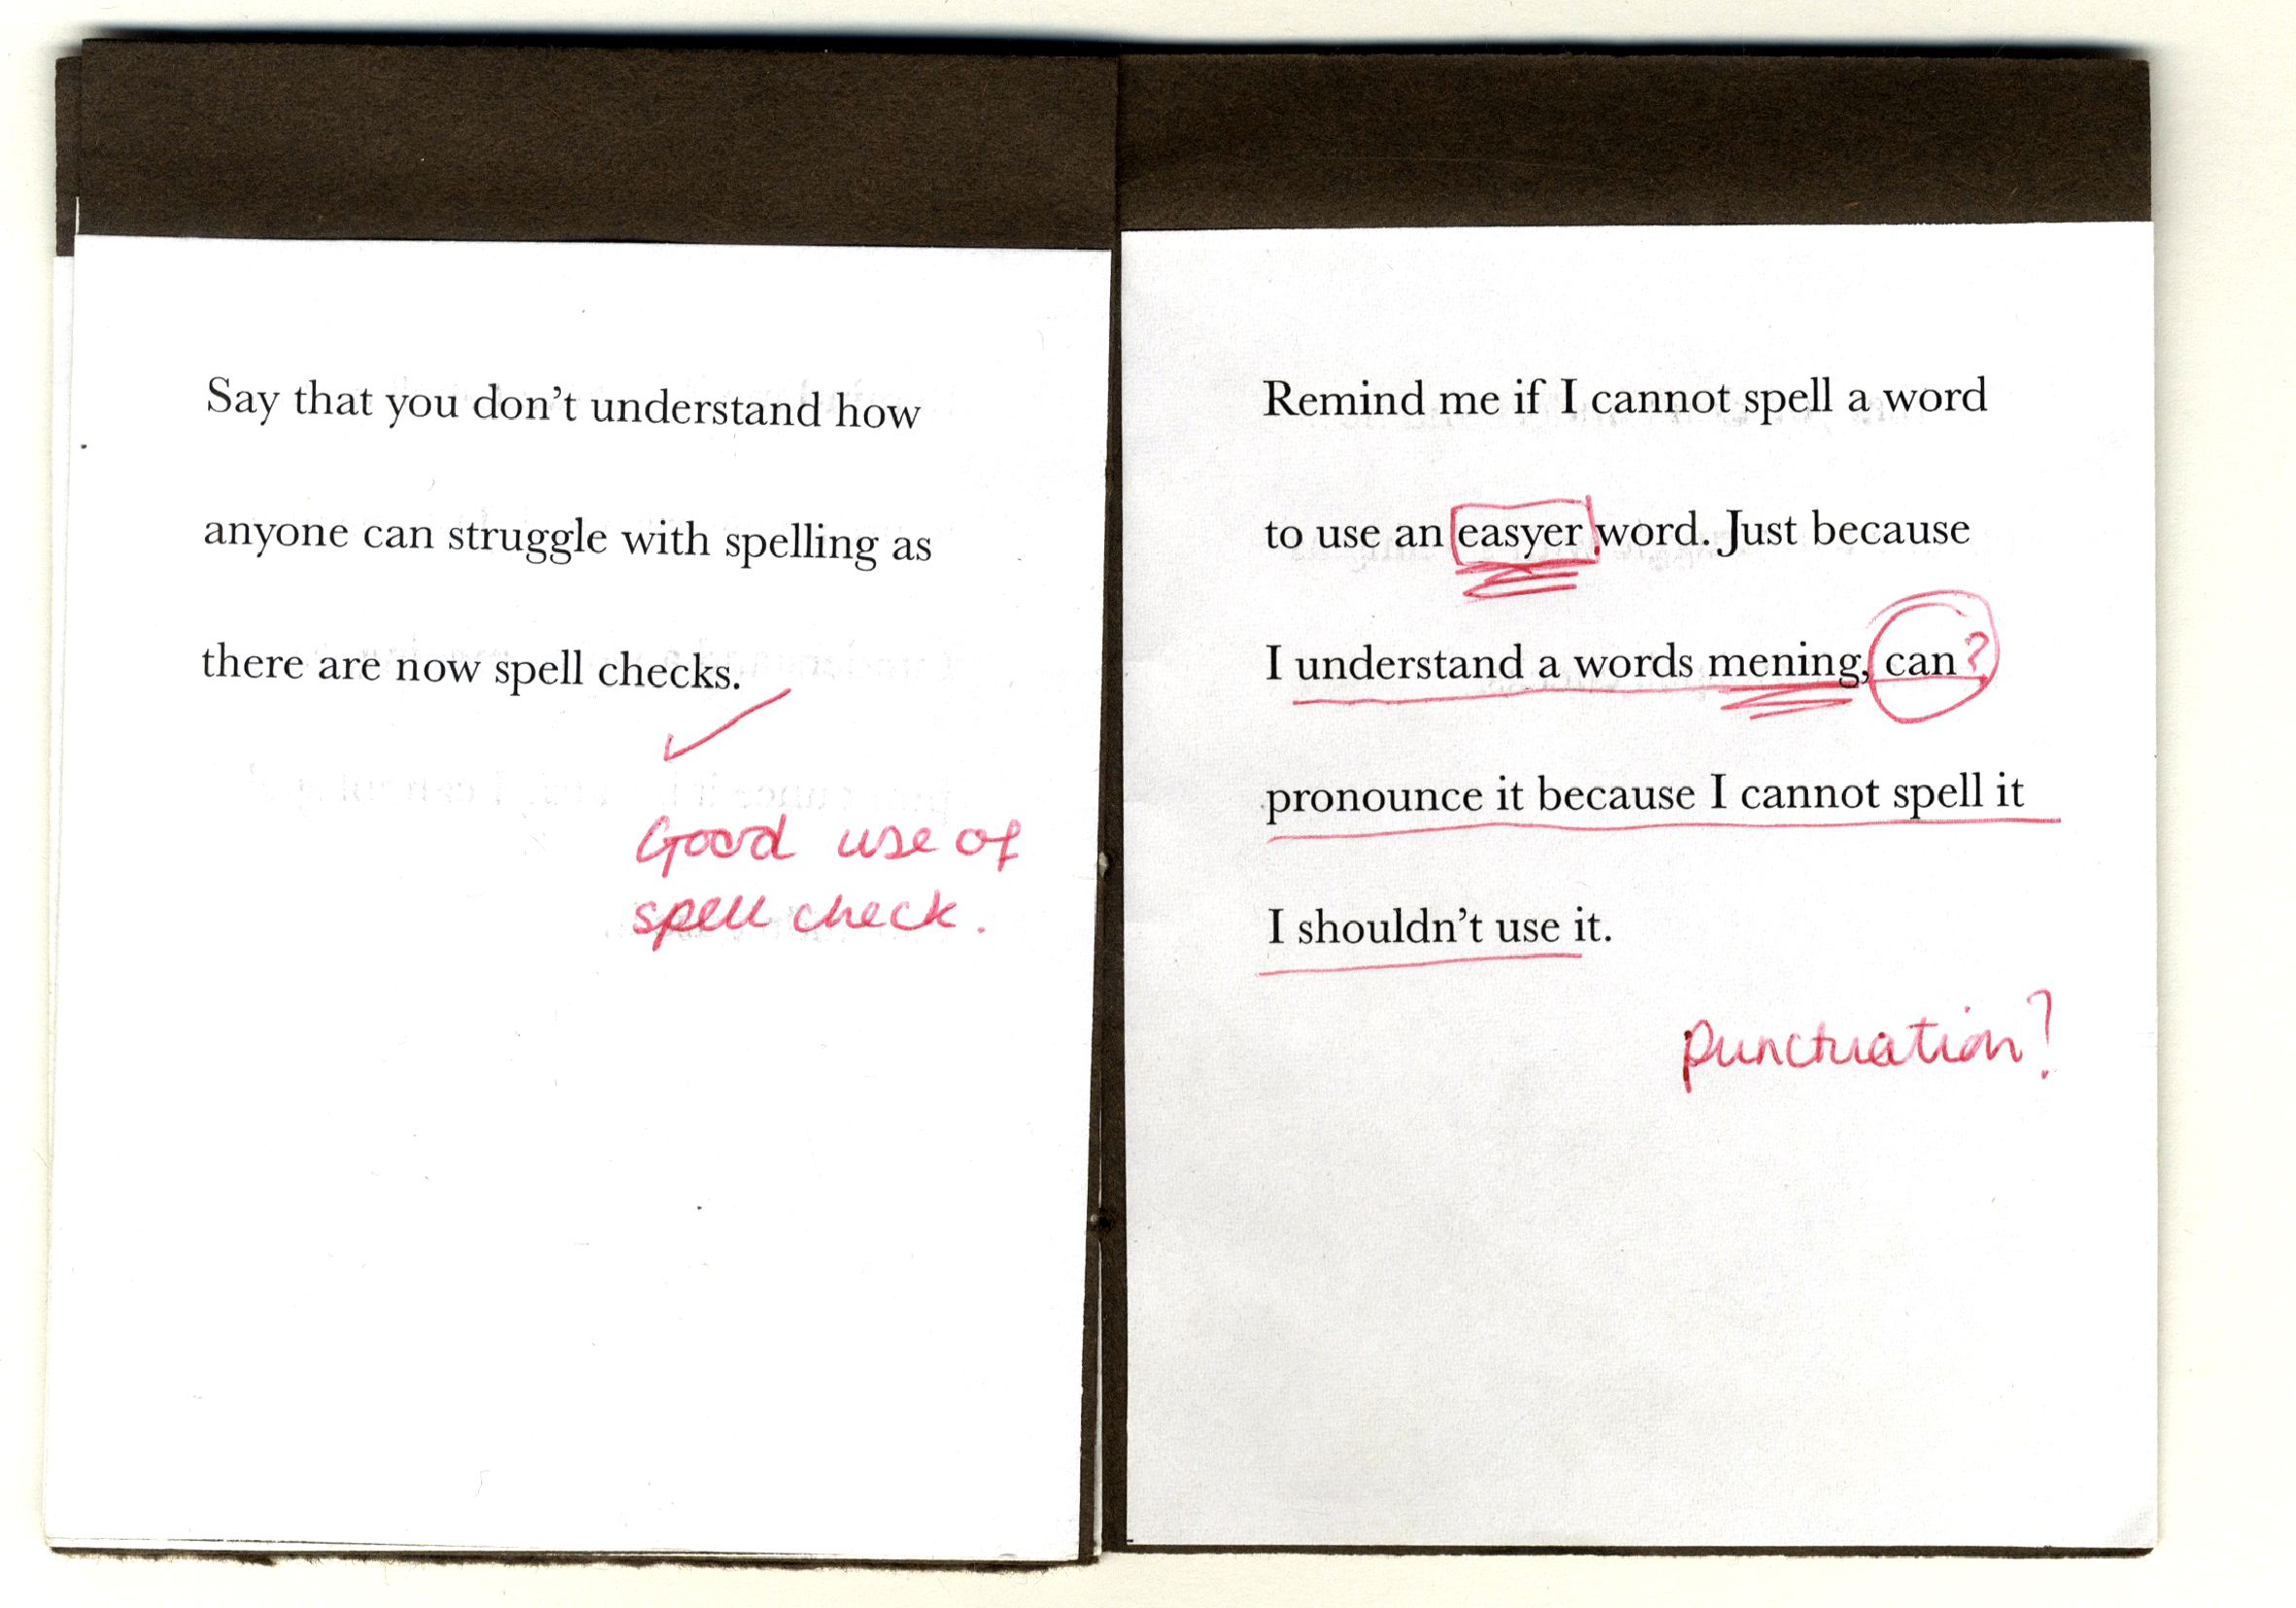 Say that you don't understand how
anyone can struggle with spelling as
there are now spell checks.
Good use of
spell check.
Remind me if I cannot spell a word
to use an easyer word. Just because
I understand a words mening, can?
pronounce it because I cannot spell it
I shouldn't use it.
punctuation?